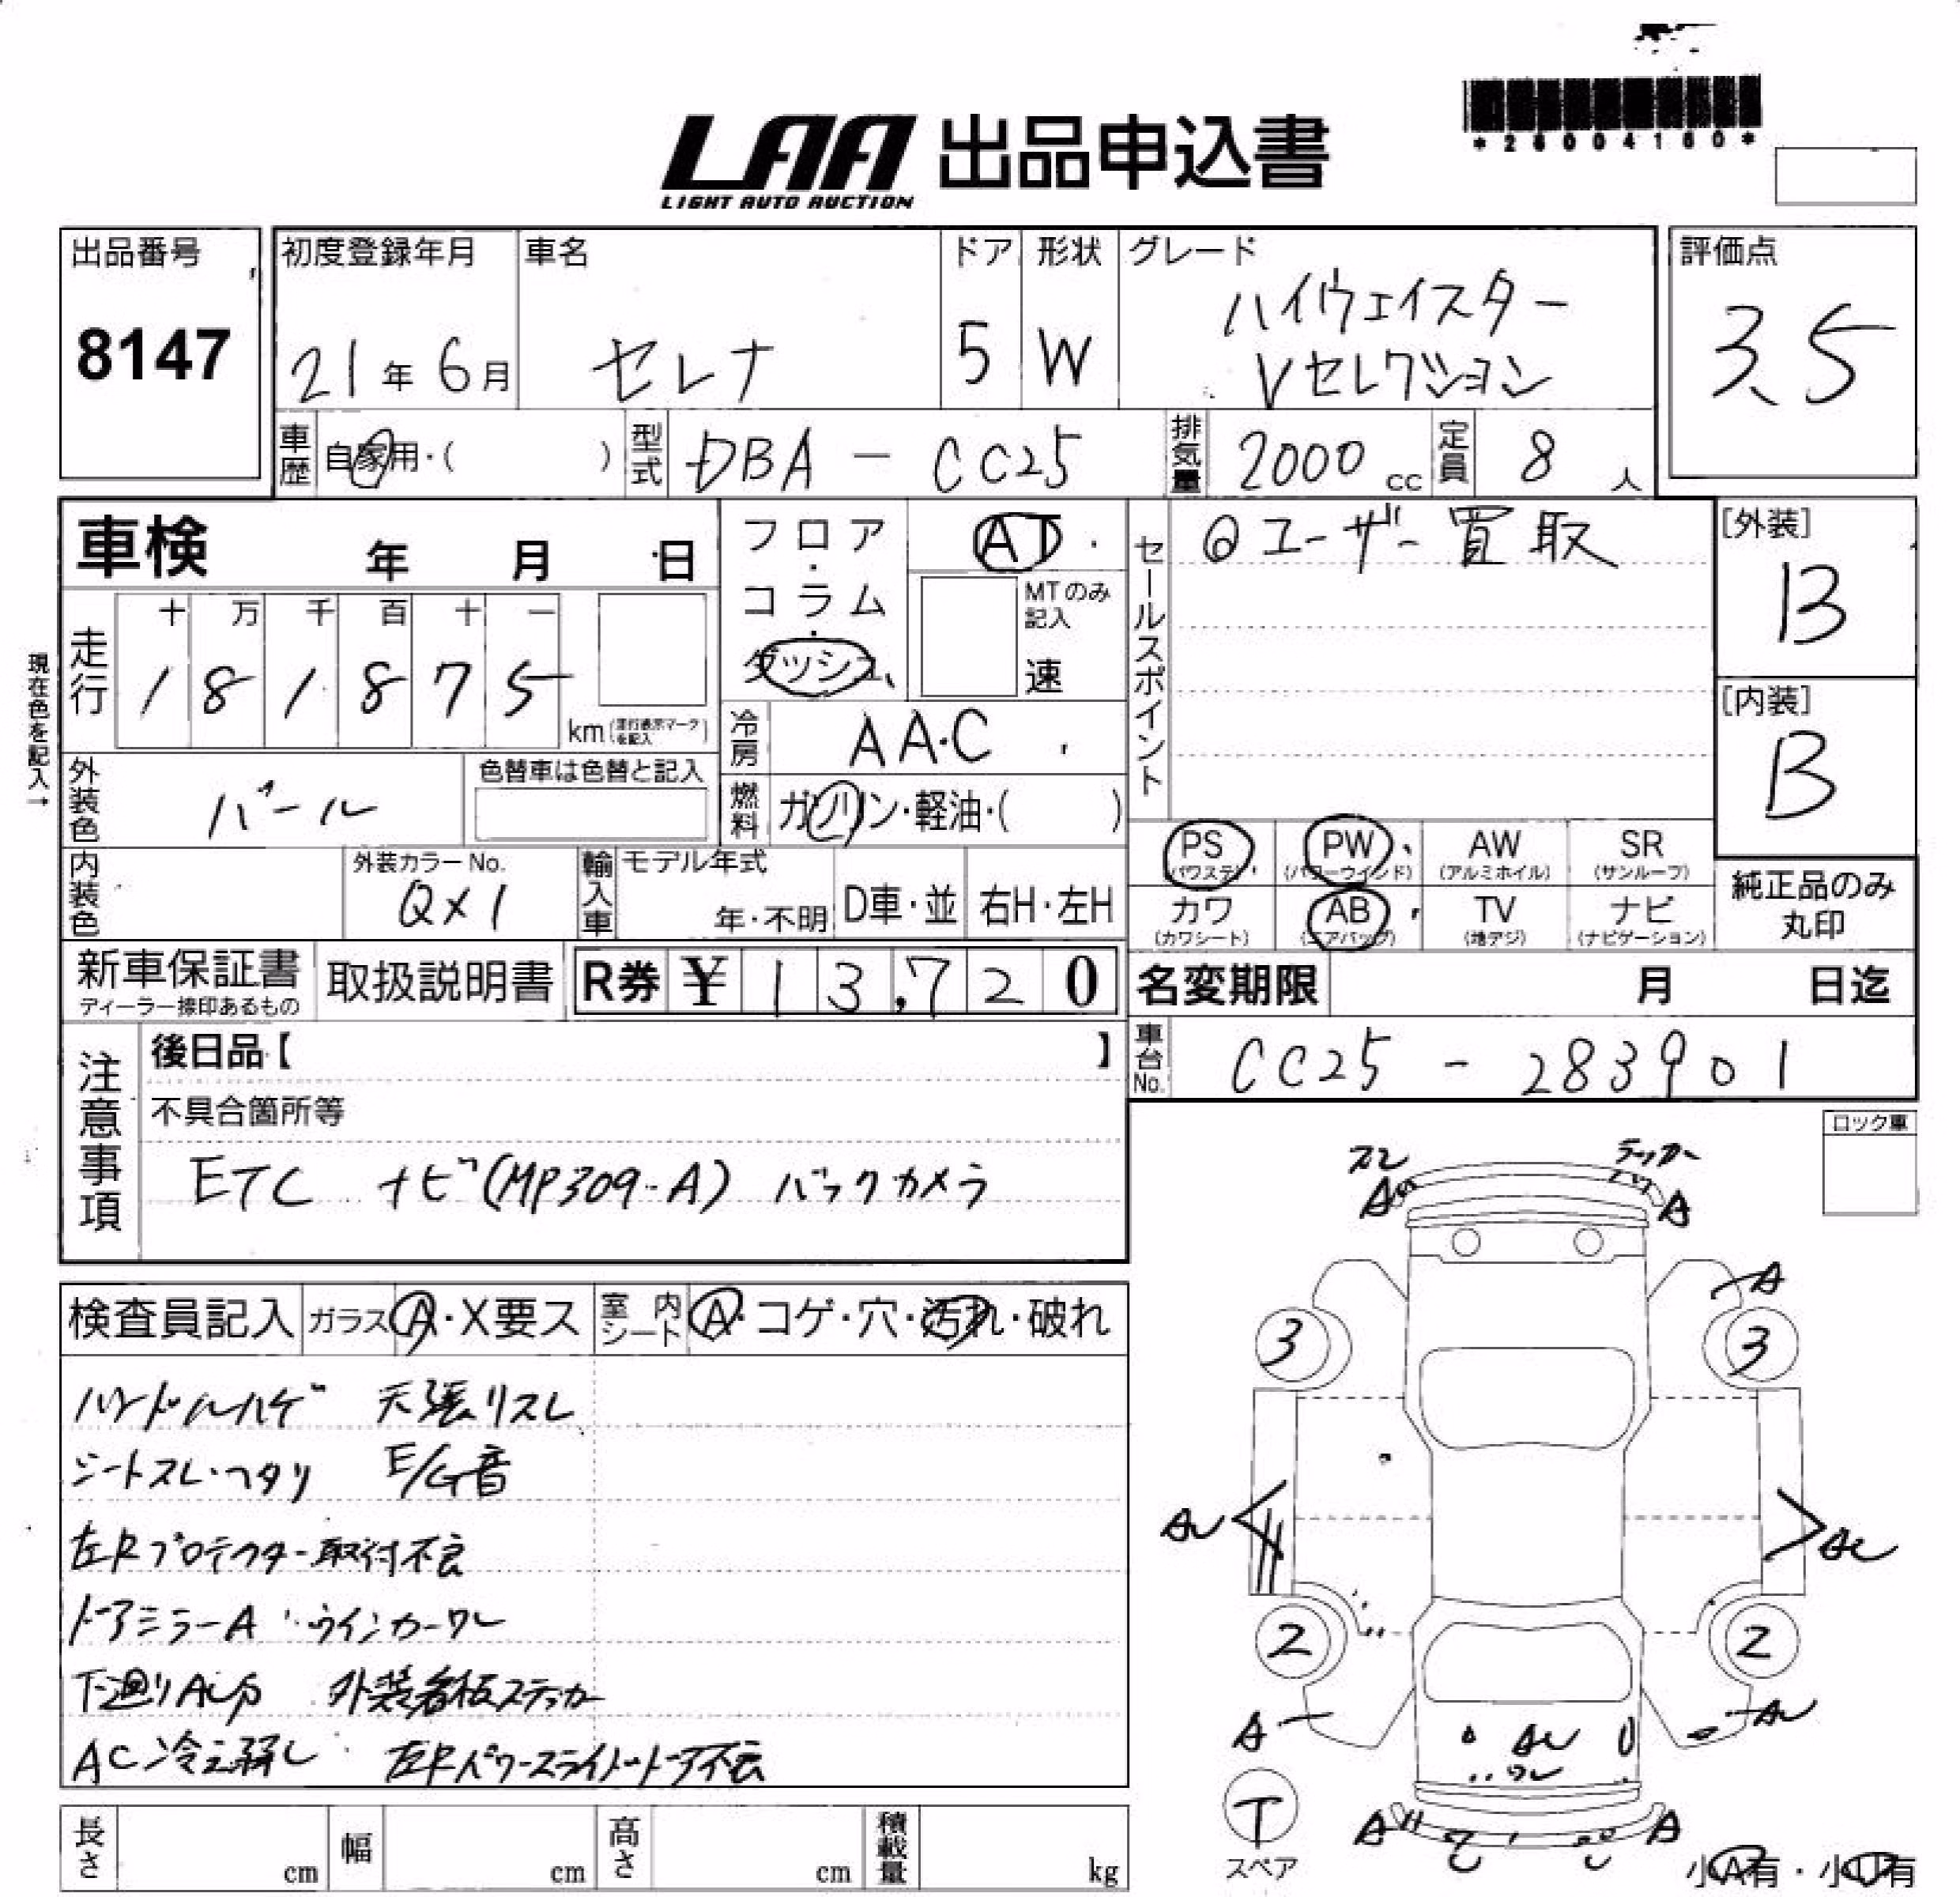 *28004160*
LAA 出品申込書
LIGHT AUTO AUCTION
出品番号
8147
初度登録年月
21年6月
車名
セレナ
ドア
5
形状
W
グレード
ハイウェイスター
Vセレクション
評価点
3.5
車歴 自家用・( )
型式 DBA - CC25
排気量 2000 cc
定員 8 人
車検 年 月 日
現在色を記入→
走行
十 万 千 百 十 一
1 8 1 8 7 5
km (走行表示マークを記入)
フロア・
コラム・
ダッシュ
AT
MTのみ
記入
速
冷房 AAC
燃料 ガソリン・軽油・( )
セールスポイント
ユーザー買取
[外装]
B
[内装]
B
外装色 パール
色替車は色替と記入
内装色
外装カラーNo.
QX1
輸入車
モデル年式
年・不明
D車・並
右H・左H
PS
(パワステ)
PW
(パワーウインド)
AW
(アルミホイル)
SR
(サンルーフ)
カワ
(カワシート)
AB
(エアバッグ)
TV
(地デジ)
ナビ
(ナビゲーション)
純正品のみ
丸印
新車保証書
ディーラー捺印あるもの
取扱説明書
R券 ¥ 13,720
名変期限 月 日迄
車台No. CC25 - 283901
注意事項
後日品【 】
不具合箇所等
ETC ナビ(MP309-A) バックカメラ
ロック車
検査員記入
ガラス A・X要ス
室内シート A・コゲ・穴・汚れ・破れ
ハンドルハゲ 天張リスレ
シートスレ・ヘタリ E/G音
左Rプロテクター取付不良
ドアミラーA ウインカーワレ
下廻り 外装看板ステッカー
AC冷え弱し 左Rパワースライドドア不良
スレ
ステッカー
A
A
A
3
3
AU
AU
2
2
A
AU
AU
ワレ
T
スペア
A
A
小A有・小U有
長さ cm
幅 cm
高さ cm
積載量 kg